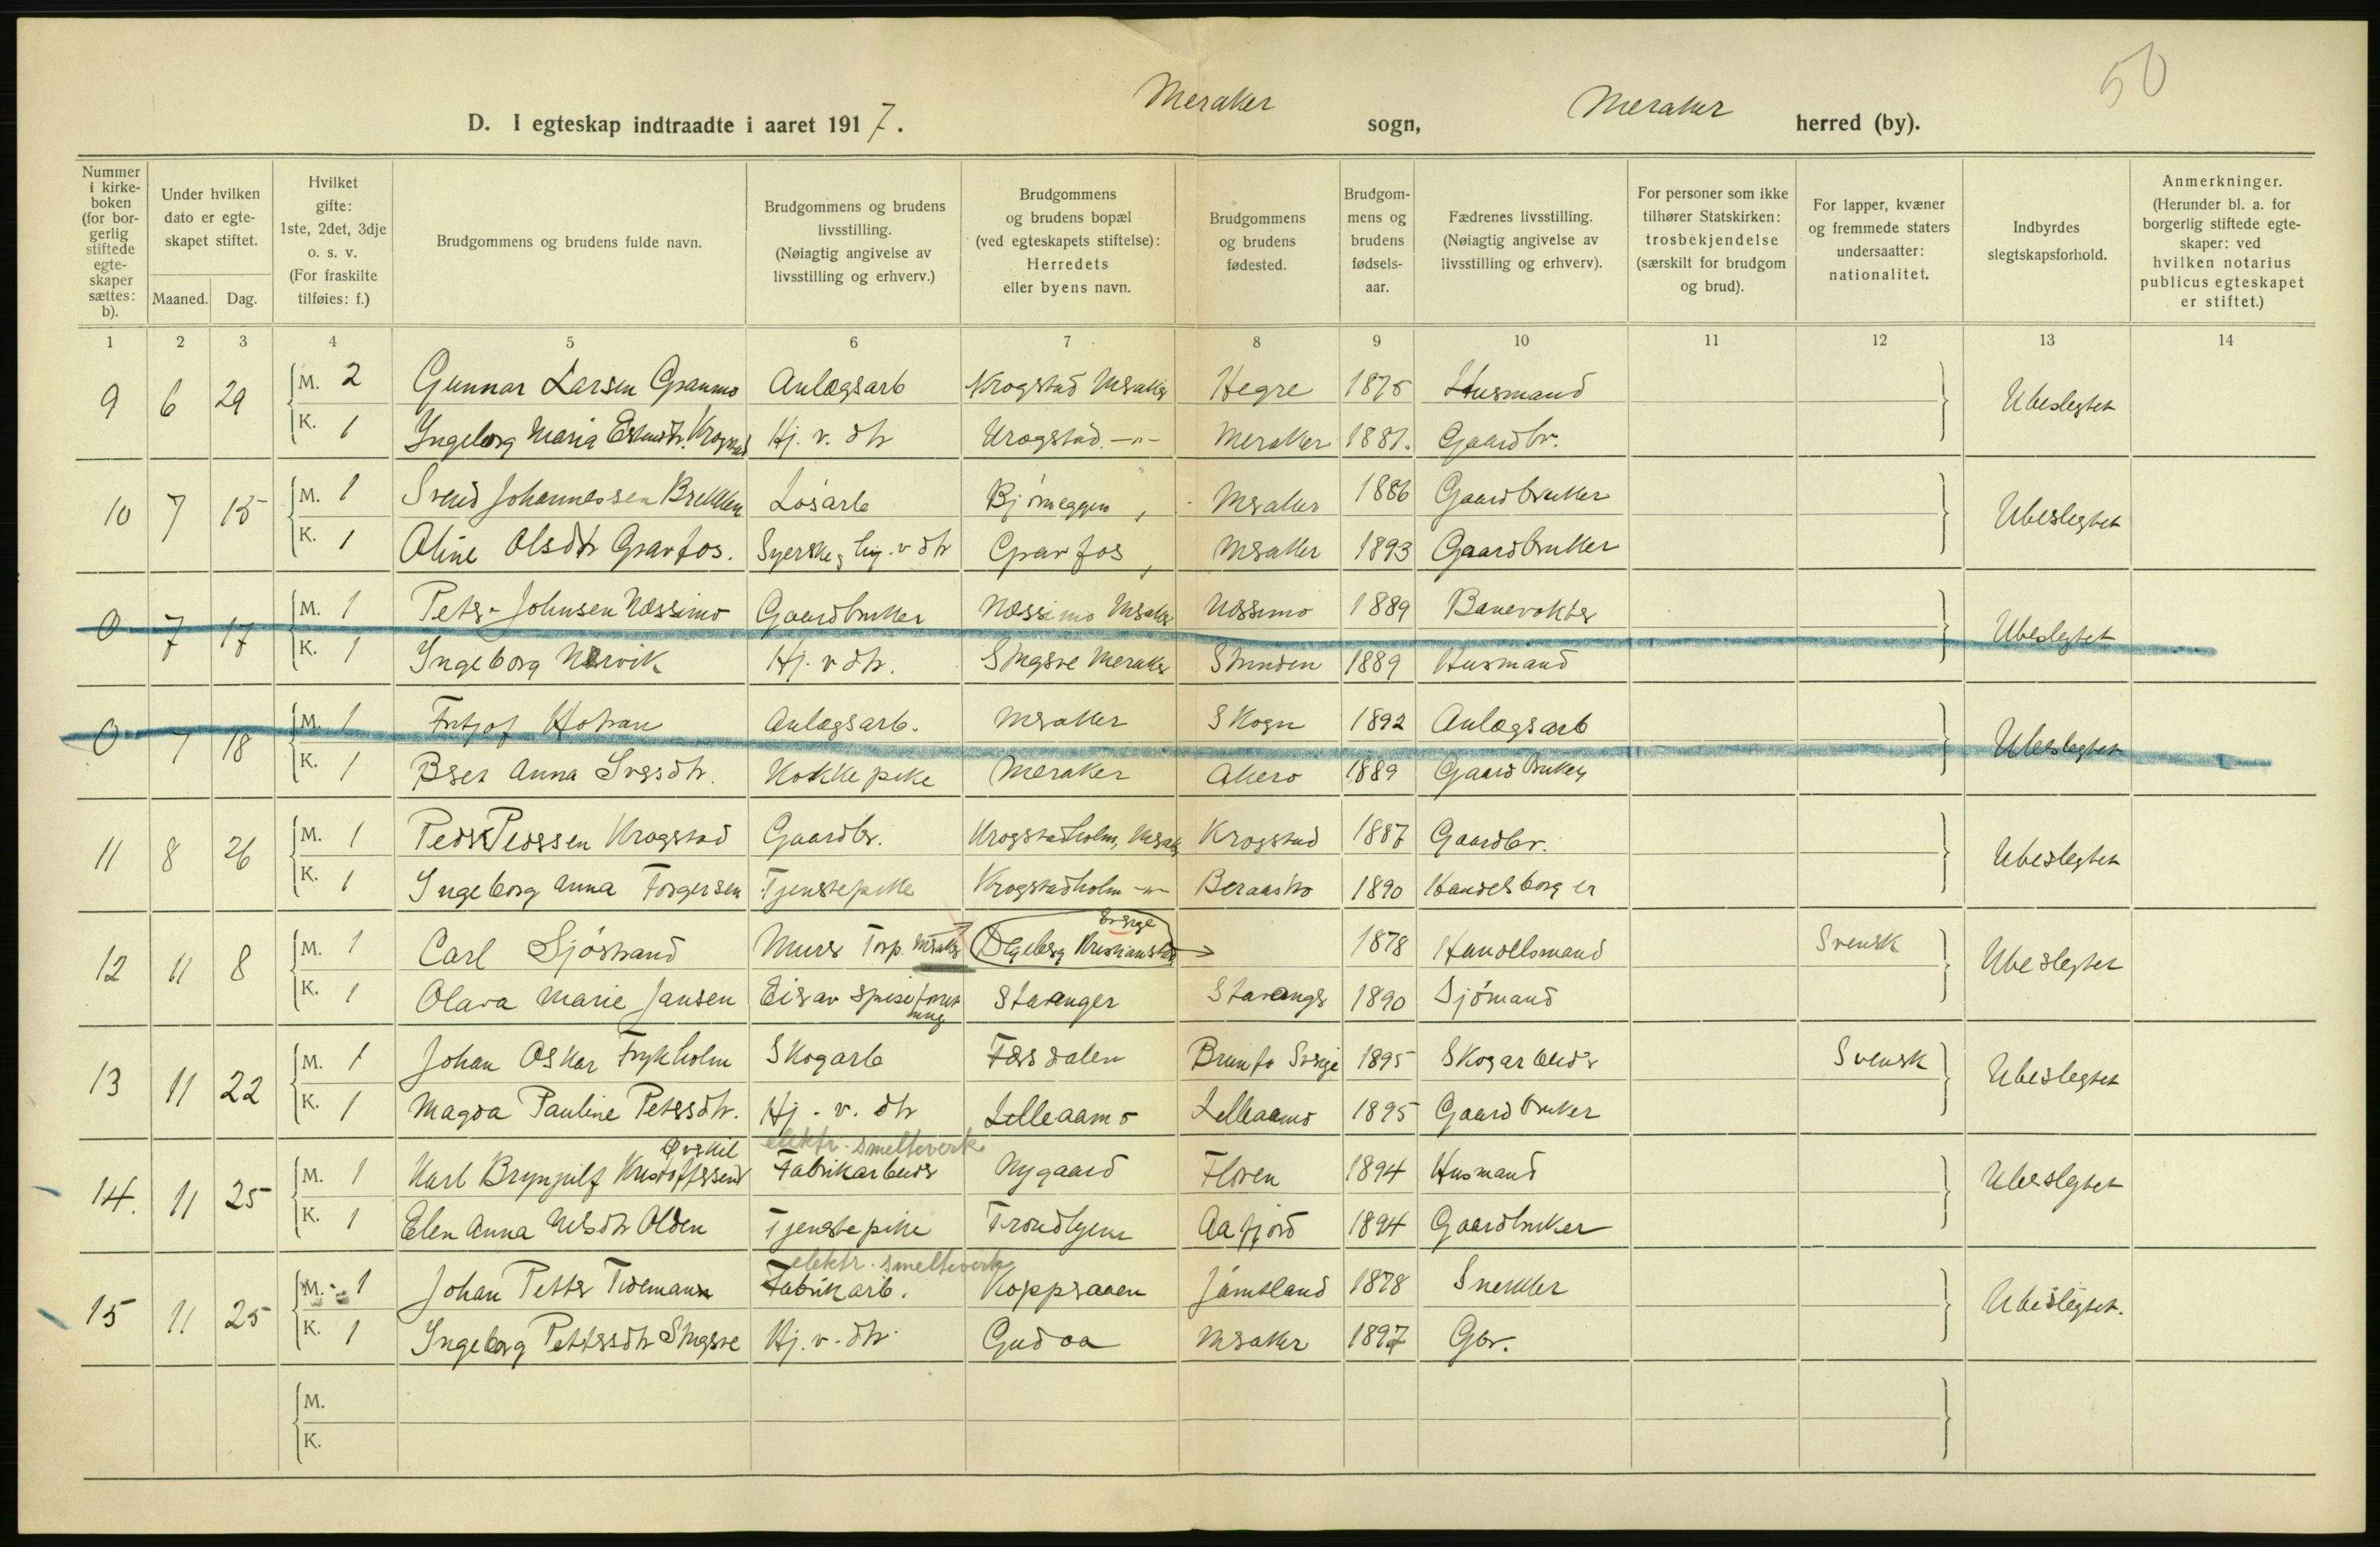 50
Meraker Meraker
D. I egteskap indtraadte i aaret 1917. sogn, herred (by).
Nummer i kirke-boken (for bor-gerlig stiftede egte-skaper sættes: b).
Under hvilken dato er egte-skapet stiftet.
Maaned. Dag.
Hvilket gifte: 1ste, 2det, 3dje o. s. v. (For fraskilte tilføies: f.)
Brudgommens og brudens fulde navn.
Brudgommens og brudens livsstilling. (Nøiagtig angivelse av livsstilling og erhverv.)
Brudgommens og brudens bopæl (ved egteskapets stiftelse): Herredets eller byens navn.
Brudgommens og brudens fødested.
Brudgom-mens og brudens fødsels-aar.
Fædrenes livsstilling. (Nøiagtig angivelse av livsstilling og erhverv).
For personer som ikke tilhører Statskirken: trosbekjendelse (særskilt for brudgom og brud).
For lapper, kvæner og fremmede staters undersaatter: nationalitet.
Indbyrdes slegtskapsforhold.
Anmerkninger. (Herunder bl. a. for borgerlig stiftede egte-skaper: ved hvilken notarius publicus egteskapet er stiftet.)
1 2 3 4 5 6 7 8 9 10 11 12 13 14
9 6 29 M. 2 Gunnar Larsen Granmo Anlægsarb Krogstad Meraker Hegre 1875 Husmand Ubeslegtet
K. 1 Ingeborg Maria Krogstad Hj. v. dtr Krogstad -"- Meraker 1881. Gaardbr.
10 7 15 M. 1 Svend Johannessen Brekken Løsarb Bjørneggen, Meraker 1886 Gaardbruker Ubeslegtet
K. 1 Oline Olsdtr Gravfos. Syerske, hj. v dtr Gravfos, Meraker 1893 Gaardbruker
0 7 17 M. 1 Peter Johnsen Næssimo Gaardbruker Næssimo Meraker Næssimo 1889 Banevokter Ubeslegtet
K. 1 Ingeborg Nervik Hj. v dtr. Stugsve Meraker Strinden 1889 Husmand
0 7 18 M. 1 Fritjof Hokran Anlægsarb. Meraker Skogn 1892 Anlægsarb Ubeslegtet
K. 1 Beret Anna Iversdtr. Kokkepike Meraker Akerø 1889 Gaardbruker
11 8 26 M. 1 Peder Pedersen Krogstad Gaardbr. Krogstadholm, Meraker Krogstad 1887 Gaardbr. Ubeslegtet
K. 1 Ingeborg Anna Torgersen Tjenestepike Krogstadholm -"- Beraasbro 1890 Handelsborger
Sverge
12 11 8 M. 1 Carl Sjöstrand Murer Torp. Meraker Degeberg Kristianstad 1878 Handelsmand Svensk Ubeslegtet
K. 1 Olava Marie Jansen Eier av spiseforretning Stavanger Stavanger 1890 Sjömand
13 11 22 M. 1 Johan Oskar Frykholm Skogarb Færdalen Brunflo Sverge 1895 Skogarbeider Svensk Ubeslegtet
K. 1 Magda Pauline Petersdtr. Hj. v. dtr Lilleaamo Lilleaamo 1895 Gaardbruker
Øvskil elektr. smelteverk
14. 11 25 M. 1 Karl Brynjulf Kristoffersen Fabrikarbeider Nygaard Floren 1894 Husmand Ubeslegtet
K. 1 Elen Anna Nelsdtr Olden Tjenestepike Trondhjem Aafjord 1894 Gaardbruker
elektr. smelteverk
15 11 25 M. 1 Johan Petter Tideman Fabrikarb. Kopperaaen Jämtland 1878 Snekker Ubeslegtet.
K. 1 Ingeborg Pettersdtr Stugsve Hj. v. dtr. Gudaa Meraker 1897 Gbr.
M.
K.